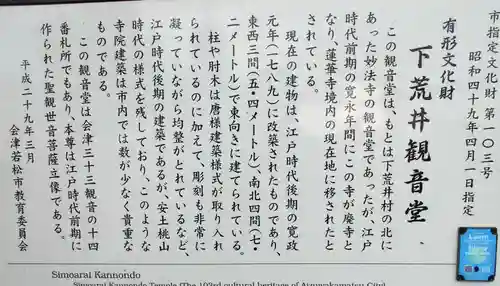 市指定文化財 第一〇三号
昭和四十九年四月一日指定
有形文化財
下荒井観音堂
この観音堂は、もとは下荒井村の北に
あった妙法寺の観音堂であったが、江戸
時代前期の寛永年間にこの寺が廃寺と
なり、蓮華寺境内の現在地に移されたと
されている。
現在の建物は、江戸時代後期の寛政
元年(一七八九)に改築されたものであり、
東西三間(五・四メートル)、南北四間(七・
二メートル)で東向きに建てられている。
柱や肘木は唐様建築様式が取り入れ
られているのに加えて、彫刻も非常に
凝っていながら均整がとれているなど、
江戸時代後期の建築であるが、安土桃山
時代の様式を残しており、このような
寺院建築は市内では数が少なく貴重な
ものである。
この観音堂は会津三十三観音の十四
番札所でもあり、本尊は江戸時代前期に
作られた聖観世音菩薩立像である。
平成二十九年三月
会津若松市教育委員会
Simoarai Kannondo
Simoarai Kannondo Temple (The 103rd cultural heritage of Aizuwakamatsu City)